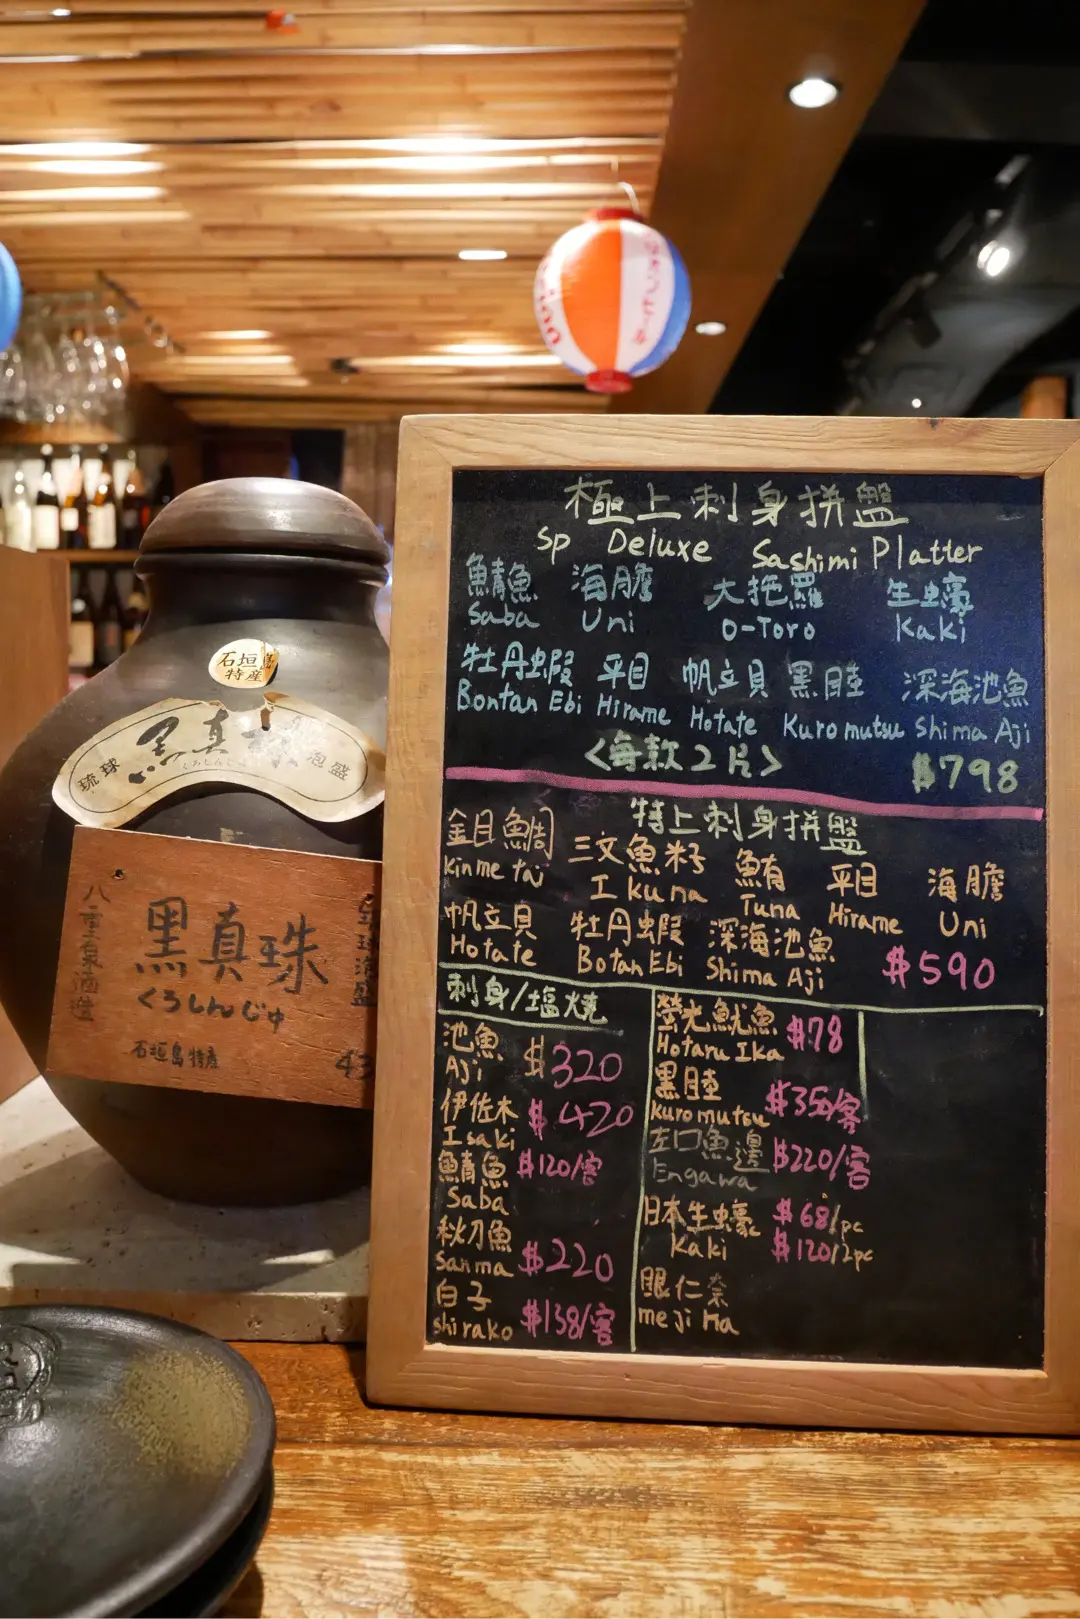 極上刺身拼盤
Sp Deluxe Sashimi Platter
鯖魚 海膽 大拖羅 生蠔
Saba Uni O-Toro Kaki
牡丹蝦 平目 帆立貝 黑睦 深海池魚
Bontan Ebi Hirame Hotate Kuromutsu Shima Aji
<每款2片> $798
特上刺身拼盤
金目鯛 三文魚籽 鮪 平目 海膽
Kinmetai Ikuna Tuna Hirame Uni
帆立貝 牡丹蝦 深海池魚 $590
Hotate Botan Ebi Shima Aji
刺身/塩燒
池魚 $320
Aji
伊佐木 $420
Isaki
鯖魚 $120/客
Saba
秋刀魚 $220
Sanma
白子 $138/客
shirako
螢光魷魚 $78
Hotaru Ika
黑睦 $350/客
kuromutsu
左口魚邊 $220/客
Engawa
日本生蠔 $68/pc
Kaki $120/2pc
眼仁奈
mejiNa
石垣島
特産
琉球 黒真珠 泡盛
くろしんじゅ
八重泉酒造
黒真珠
くろしんじゅ
石垣島特産
43